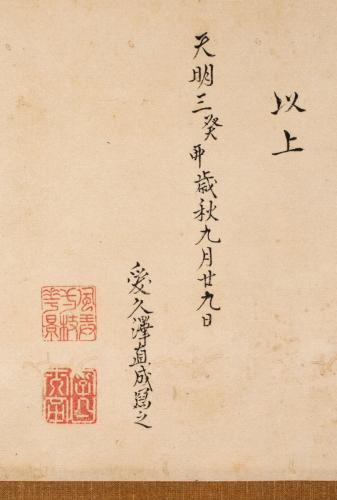 以上
天明三癸卯歳秋九月廿九日
愛久澤直成寫之